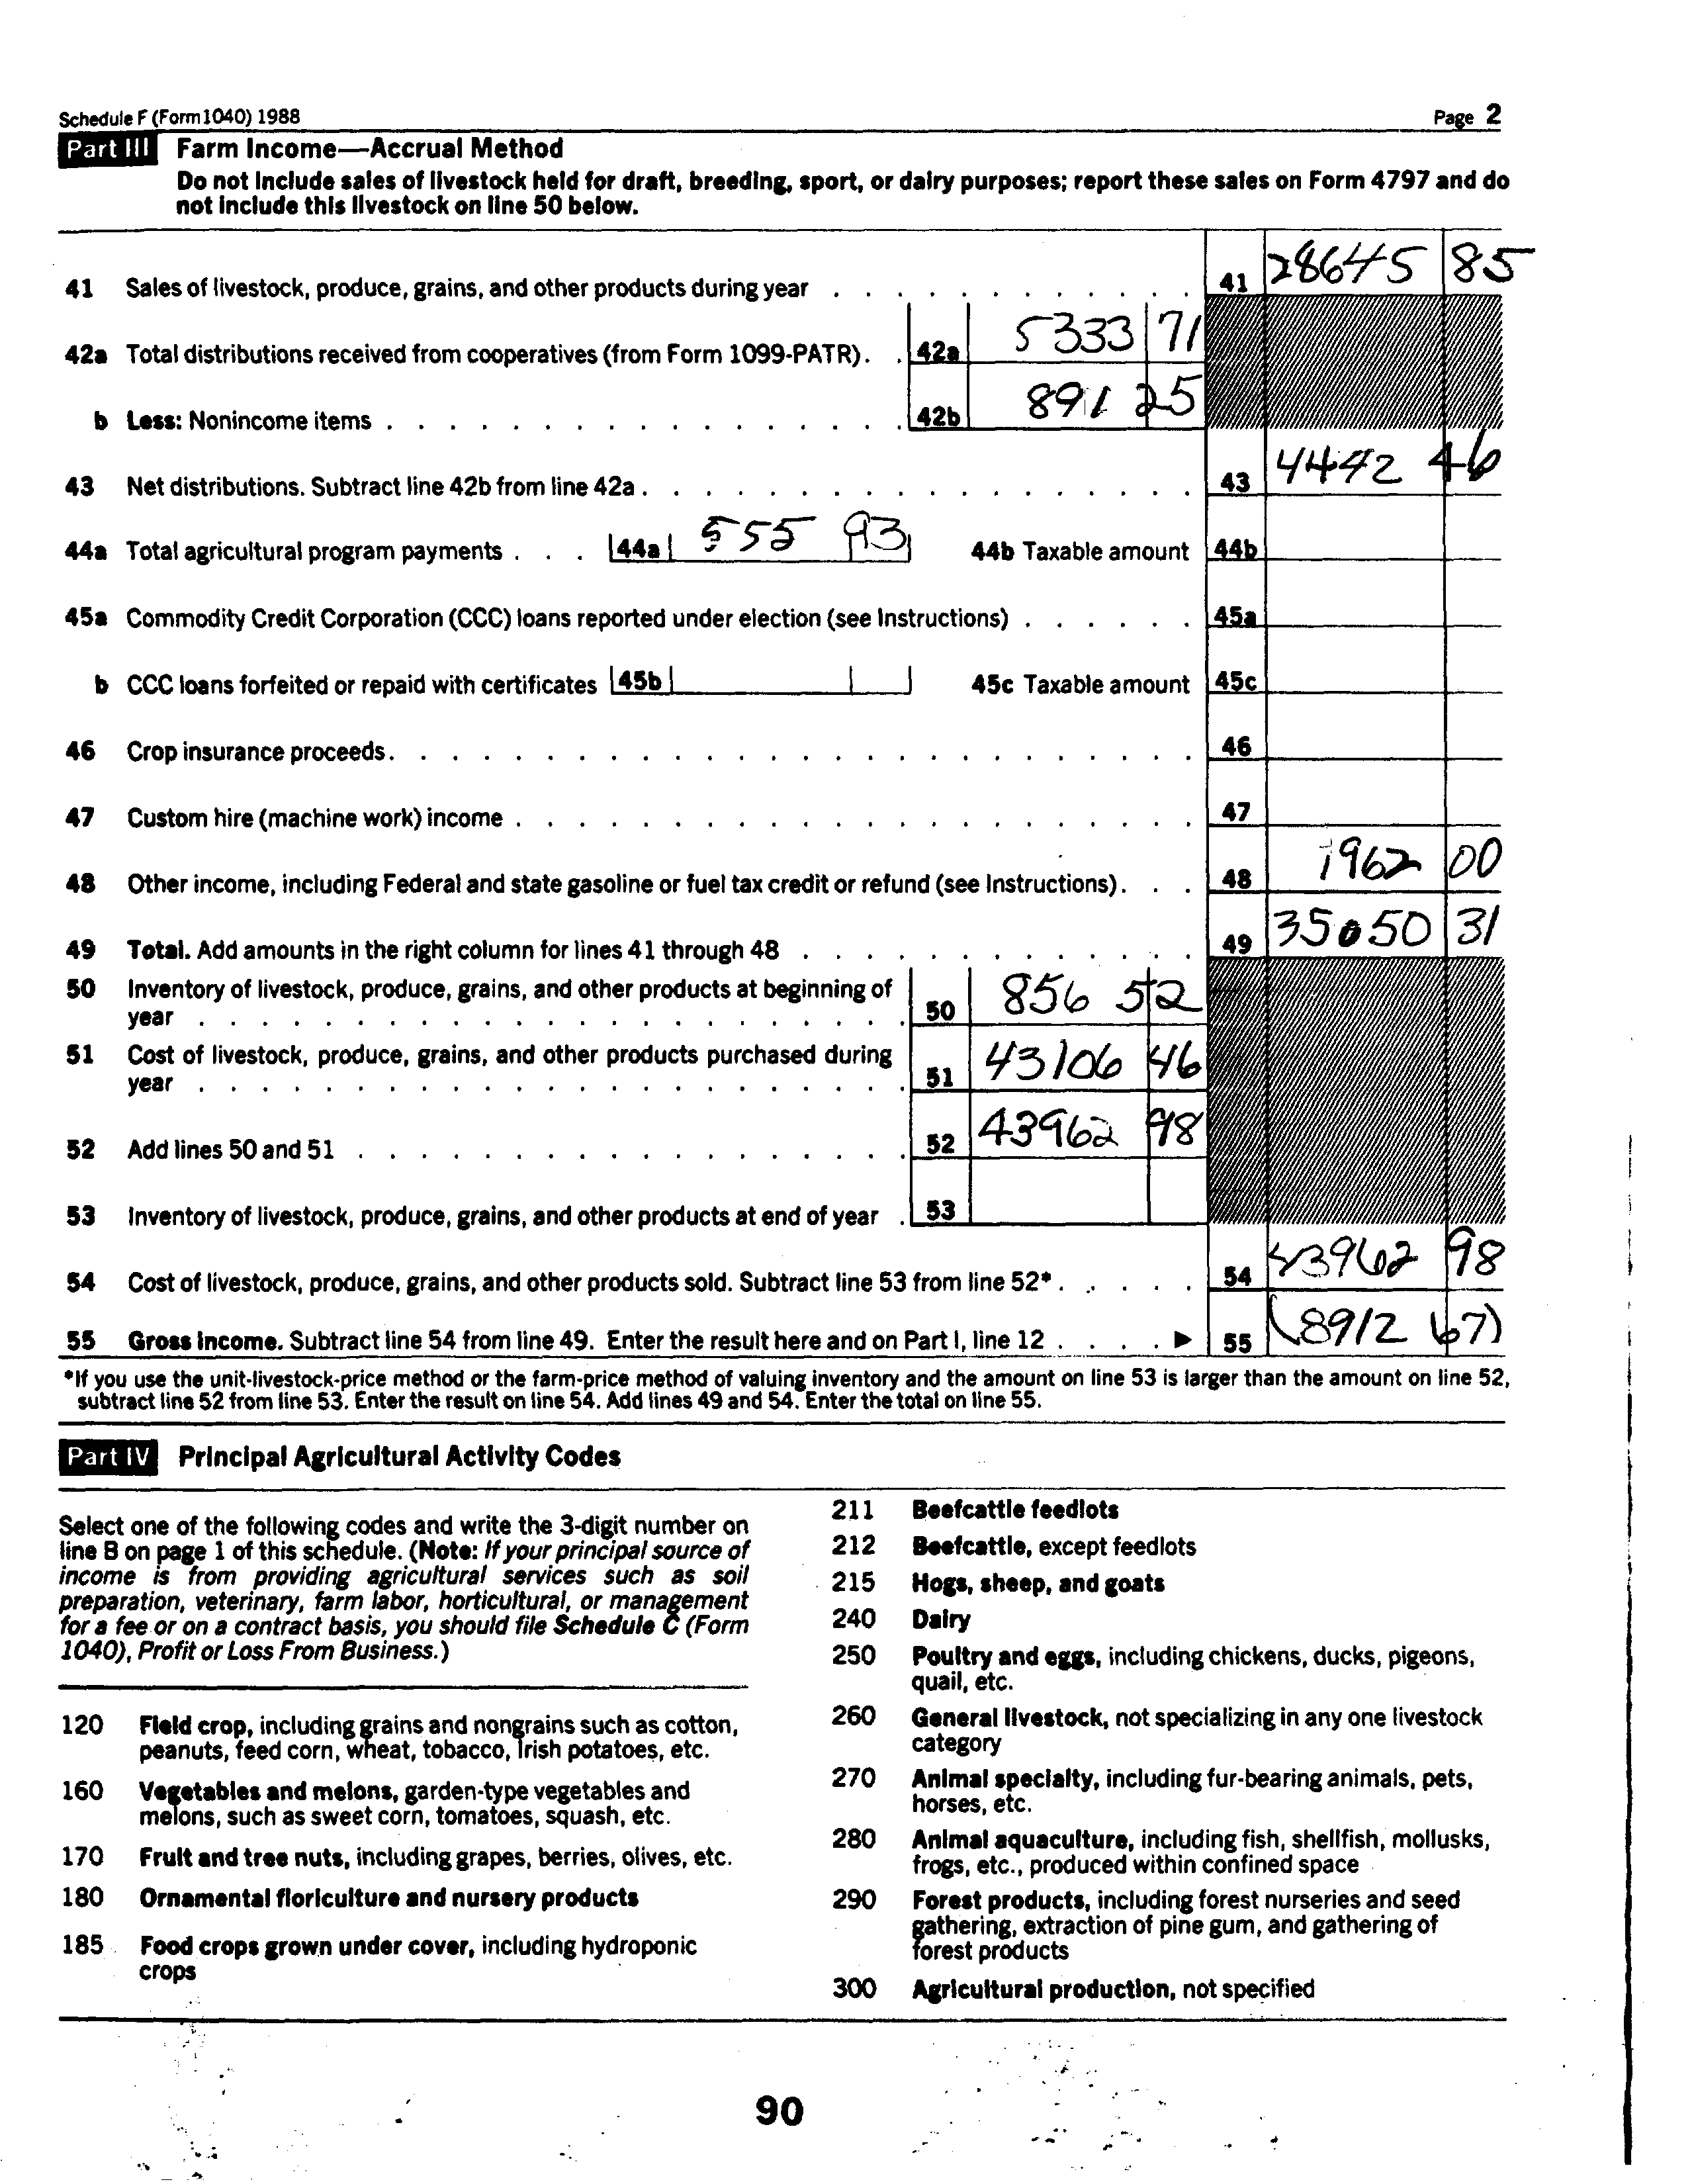 Schedule F (Form 1040) 1988 Page 2
Part III Farm Income—Accrual Method
Do not include sales of livestock held for draft, breeding, sport, or dairy purposes; report these sales on Form 4797 and do
not include this livestock on line 50 below.
41 Sales of livestock, produce, grains, and other products during year . . . . . . . . . . . . 41 28645 85
42a Total distributions received from cooperatives (from Form 1099-PATR). . 42a 5333 71
b Less: Nonincome items . . . . . . . . . . . . . . . . . 42b 891 25
43 Net distributions. Subtract line 42b from line 42a . . . . . . . . . . . . . . . . . . 43 4442 46
44a Total agricultural program payments . . . 44a 555 93 44b Taxable amount 44b
45a Commodity Credit Corporation (CCC) loans reported under election (see Instructions) . . . . . . 45a
b CCC loans forfeited or repaid with certificates 45b 45c Taxable amount 45c
46 Crop insurance proceeds. . . . . . . . . . . . . . . . . . . . . . . . . . 46
47 Custom hire (machine work) income . . . . . . . . . . . . . . . . . . . . . . 47
48 Other income, including Federal and state gasoline or fuel tax credit or refund (see Instructions) . . . 48 1962 00
49 Total. Add amounts in the right column for lines 41 through 48 . . . . . . . . . . . . . 49 35050 31
50 Inventory of livestock, produce, grains, and other products at beginning of
year . . . . . . . . . . . . . . . . . . . . . . . 50 856 52
51 Cost of livestock, produce, grains, and other products purchased during
year . . . . . . . . . . . . . . . . . . . . . . . 51 43106 46
52 Add lines 50 and 51 . . . . . . . . . . . . . . . . . . 52 43962 98
53 Inventory of livestock, produce, grains, and other products at end of year . 53
54 Cost of livestock, produce, grains, and other products sold. Subtract line 53 from line 52* . . . . . 54 43962 98
55 Gross Income. Subtract line 54 from line 49. Enter the result here and on Part I, line 12 . . . . ▶ 55 (8912 67)
*If you use the unit-livestock-price method or the farm-price method of valuing inventory and the amount on line 53 is larger than the amount on line 52,
subtract line 52 from line 53. Enter the result on line 54. Add lines 49 and 54. Enter the total on line 55.
Part IV Principal Agricultural Activity Codes
Select one of the following codes and write the 3-digit number on
line B on page 1 of this schedule. (Note: If your principal source of
income is from providing agricultural services such as soil
preparation, veterinary, farm labor, horticultural, or management
for a fee or on a contract basis, you should file Schedule C (Form
1040), Profit or Loss From Business.)
120 Field crop, including grains and nongrains such as cotton,
peanuts, feed corn, wheat, tobacco, Irish potatoes, etc.
160 Vegetables and melons, garden-type vegetables and
melons, such as sweet corn, tomatoes, squash, etc.
170 Fruit and tree nuts, including grapes, berries, olives, etc.
180 Ornamental floriculture and nursery products
185 Food crops grown under cover, including hydroponic
crops
211 Beefcattle feedlots
212 Beefcattle, except feedlots
215 Hogs, sheep, and goats
240 Dairy
250 Poultry and eggs, including chickens, ducks, pigeons,
quail, etc.
260 General livestock, not specializing in any one livestock
category
270 Animal specialty, including fur-bearing animals, pets,
horses, etc.
280 Animal aquaculture, including fish, shellfish, mollusks,
frogs, etc., produced within confined space
290 Forest products, including forest nurseries and seed
gathering, extraction of pine gum, and gathering of
forest products
300 Agricultural production, not specified
90